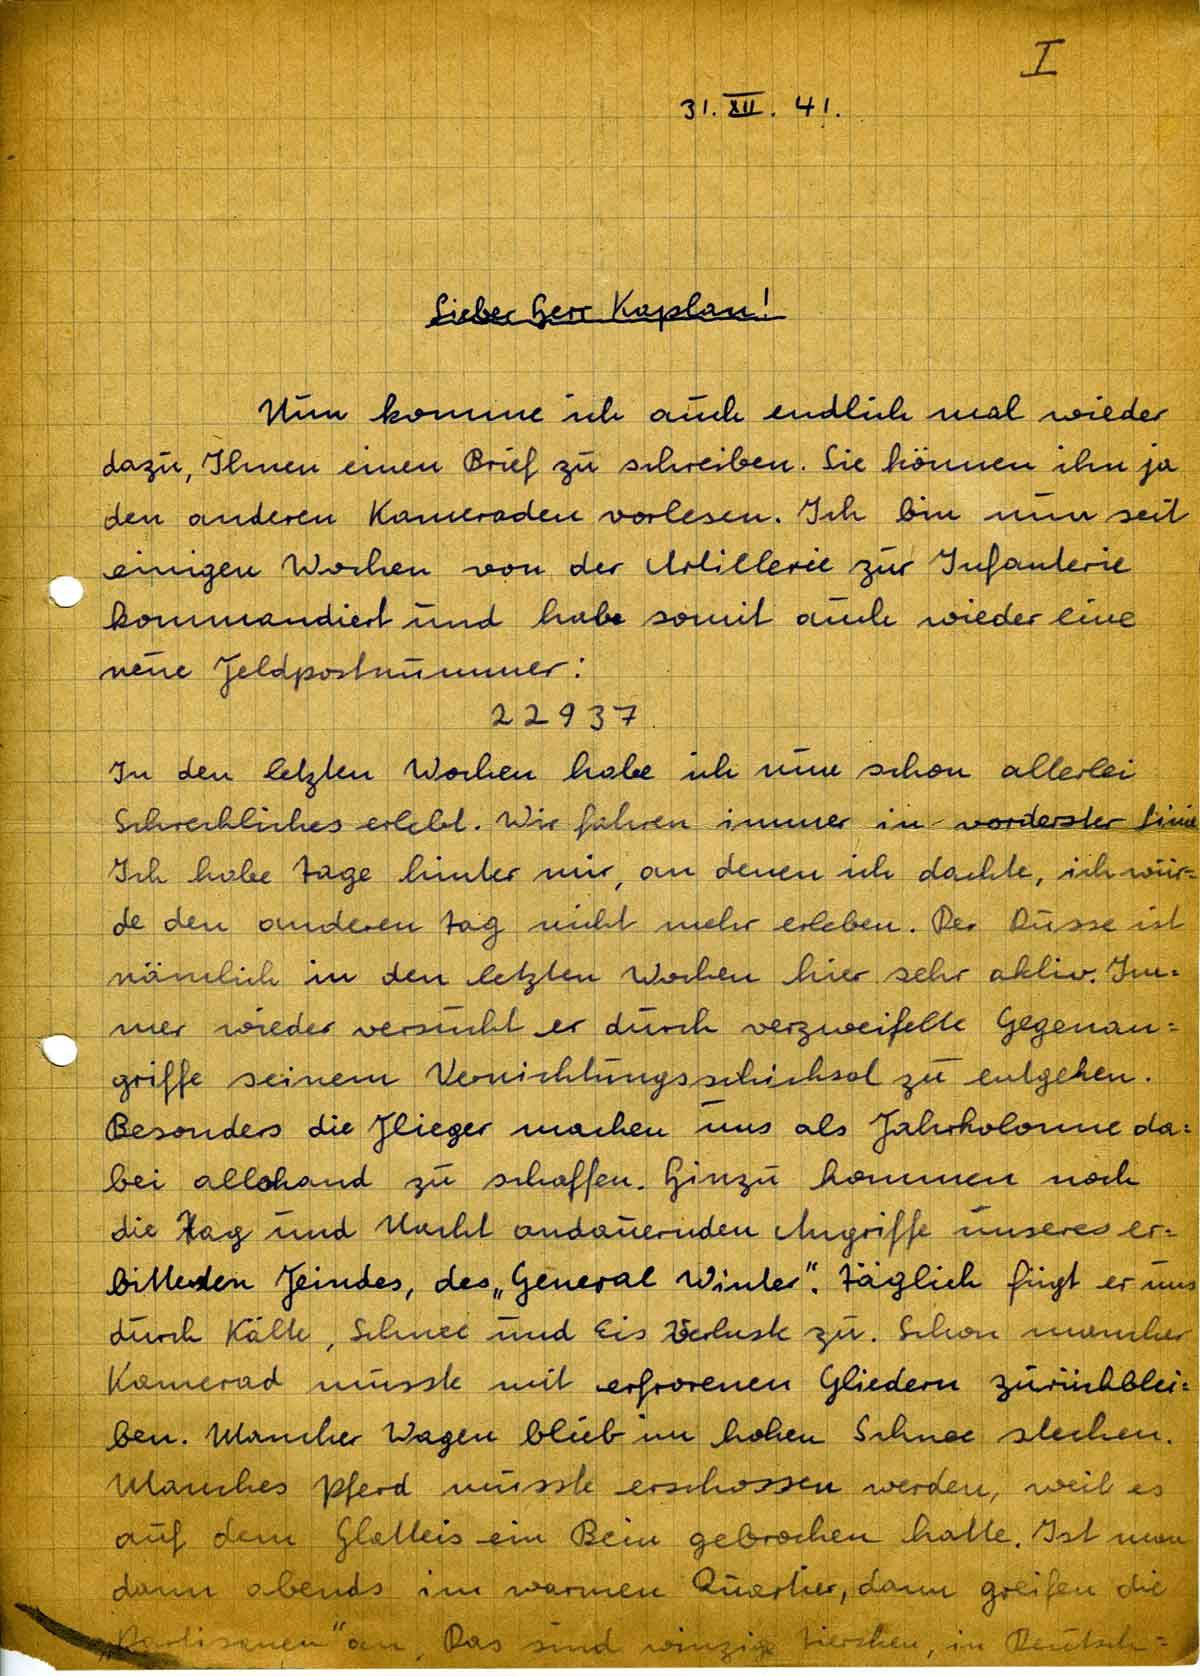 I
31. XII. 41.
Lieber Herr Kaplan!
Nun komme ich auch endlich mal wieder
dazu, Ihnen einen Brief zu schreiben. Sie können ihn ja
den anderen Kameraden vorlesen. Ich bin nun seit
einigen Wochen von der Artillerie zur Infanterie
kommandiert und habe somit auch wieder eine
neue Feldpostnummer:
22937.
In den letzten Wochen habe ich nun schon allerlei
Schreckliches erlebt. Wir fahren immer in vorderster Linie
Ich habe Tage hinter mir, an denen ich dachte, ich wür=
de den anderen Tag nicht mehr erleben. Der Russe ist
nämlich in den letzten Wochen hier sehr aktiv. Im=
mer wieder versucht er durch verzweifelte Gegenan=
griffe seinem Vernichtungsschicksal zu entgehen.
Besonders die Flieger machen uns als Fahrkolonne da=
bei allerhand zu schaffen. Hinzu kommen noch
die Tag und Nacht andauernden Angriffe unseres er=
bittersten Feindes, des „General Winter“. Täglich fügt er uns
durch Kälte, Schnee und Eis Verluste zu. Schon mancher
Kamerad musste mit erfrorenen Gliedern zurückblei=
ben. Mancher Wagen blieb im hohen Schnee stecken.
Manches Pferd musste erschossen werden, weil es
auf dem Glatteis ein Bein gebrochen hatte. Ist man
dann abends im warmen Quartier, dann greifen die
„Partisanen“ an. Das sind winzige Tierchen, in Deutsch=